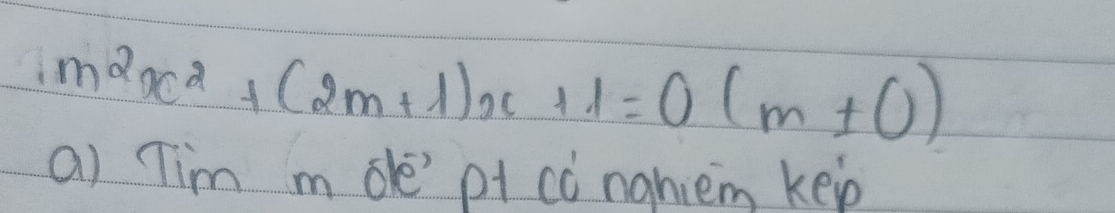 m²x² + (2m+1)x + 1 = 0 (m ≠ 0)
a) Tìm m để pt có nghiệm kép